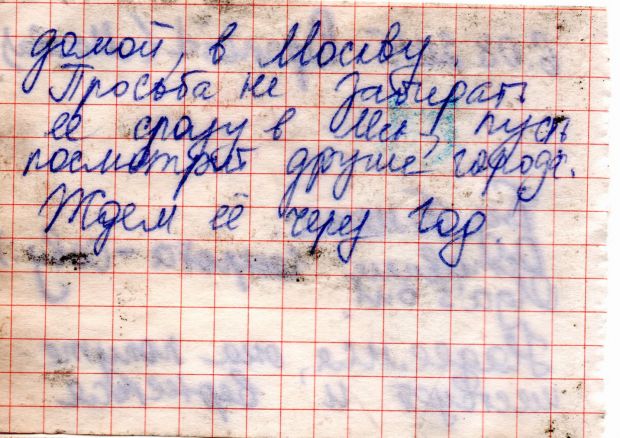 домой, в Москву.
Просьба не забирать
её сразу в Мск, пусть
посмотрит другие города.
Ждем её через год.